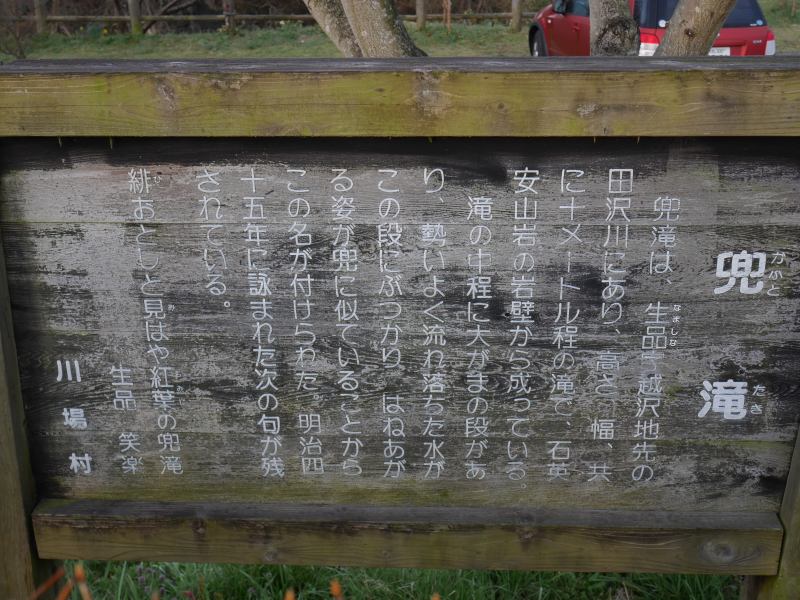 兜滝
かぶと
たき
兜滝は、生品字越沢地先の
なましな
田沢川にあり、高さ、幅、共
に十メートル程の滝で、石英
安山岩の岩壁から成っている。
滝の中程に大がまの段があ
り、勢いよく流れ落ちた水が
この段にぶつかり、はねあが
る姿が兜に似ていることから
この名が付けられた。明治四
十五年に詠まれた次の句が残
されている。
緋おとしと見はや紅葉の兜滝
生品 笑楽
川場村